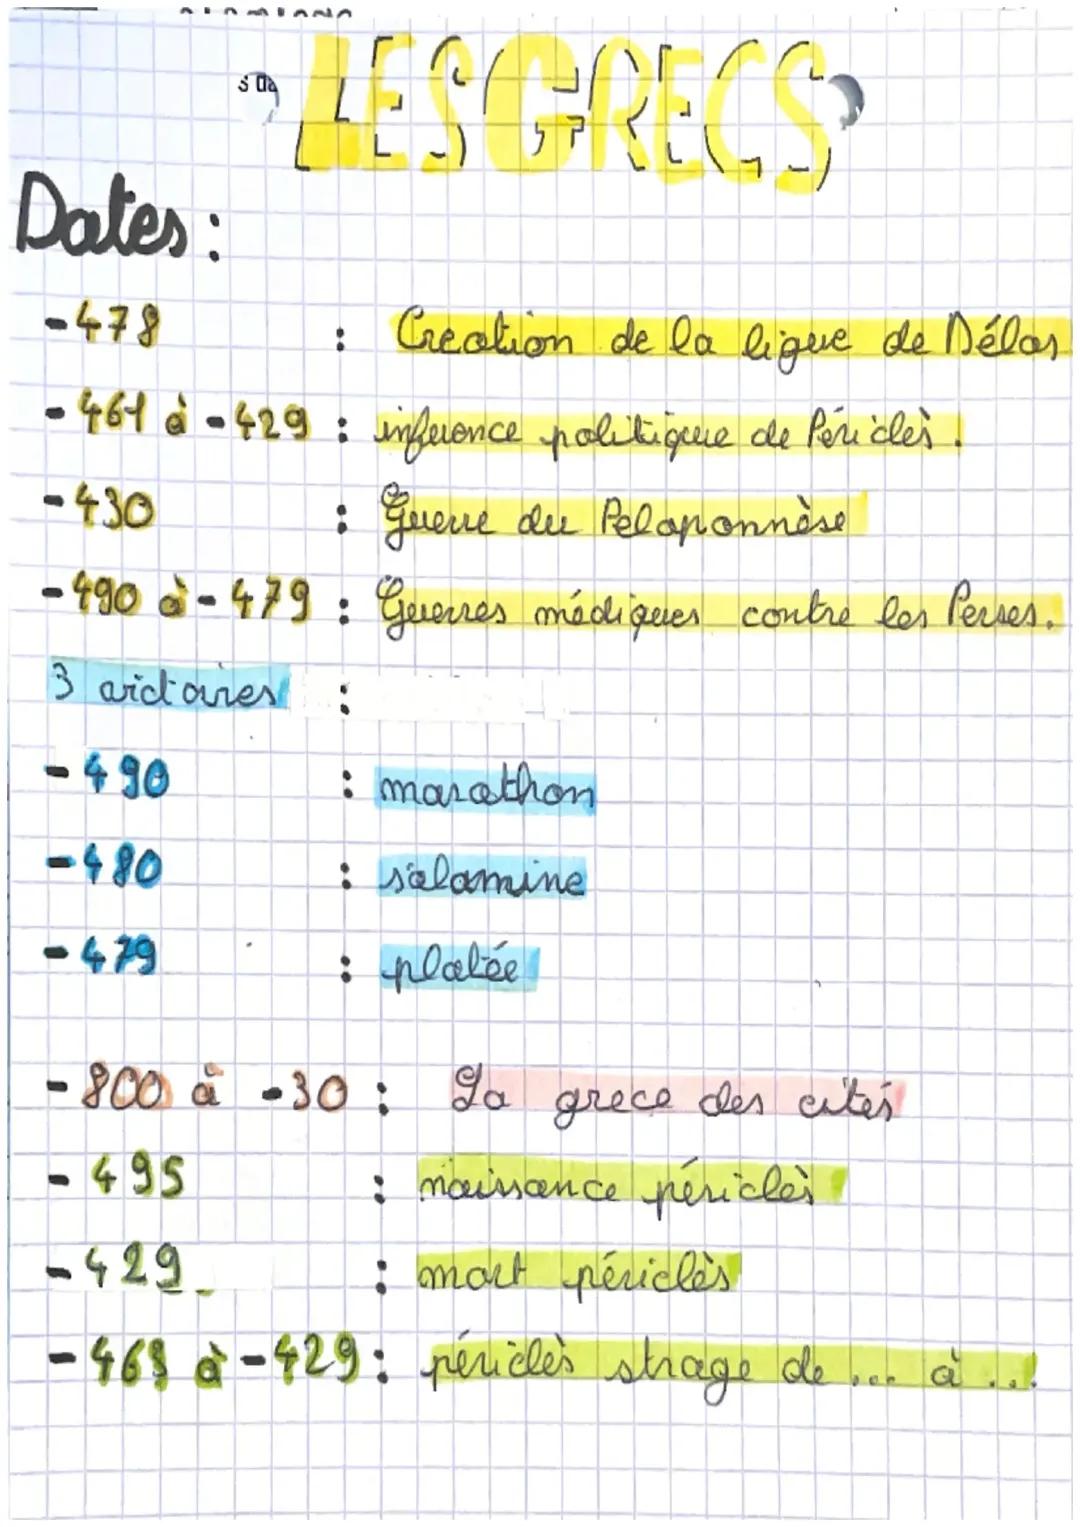 LES GRECS
Dates :
-478 : Creation de la ligue de Délos
-461 à -429 : infuence politique de Périclès.
-430 : Guerre du Peloponnèse
-490 à -479 : Guerres médiques contre les Perses.
3 victoires :
-490 : marathon
-480 : salamine
-479 : platée
-800 à -30 : La grece des cités
-495 : naissance périclès
-429 : mort périclès
-468 à -429 : périclès strage de ... à ...